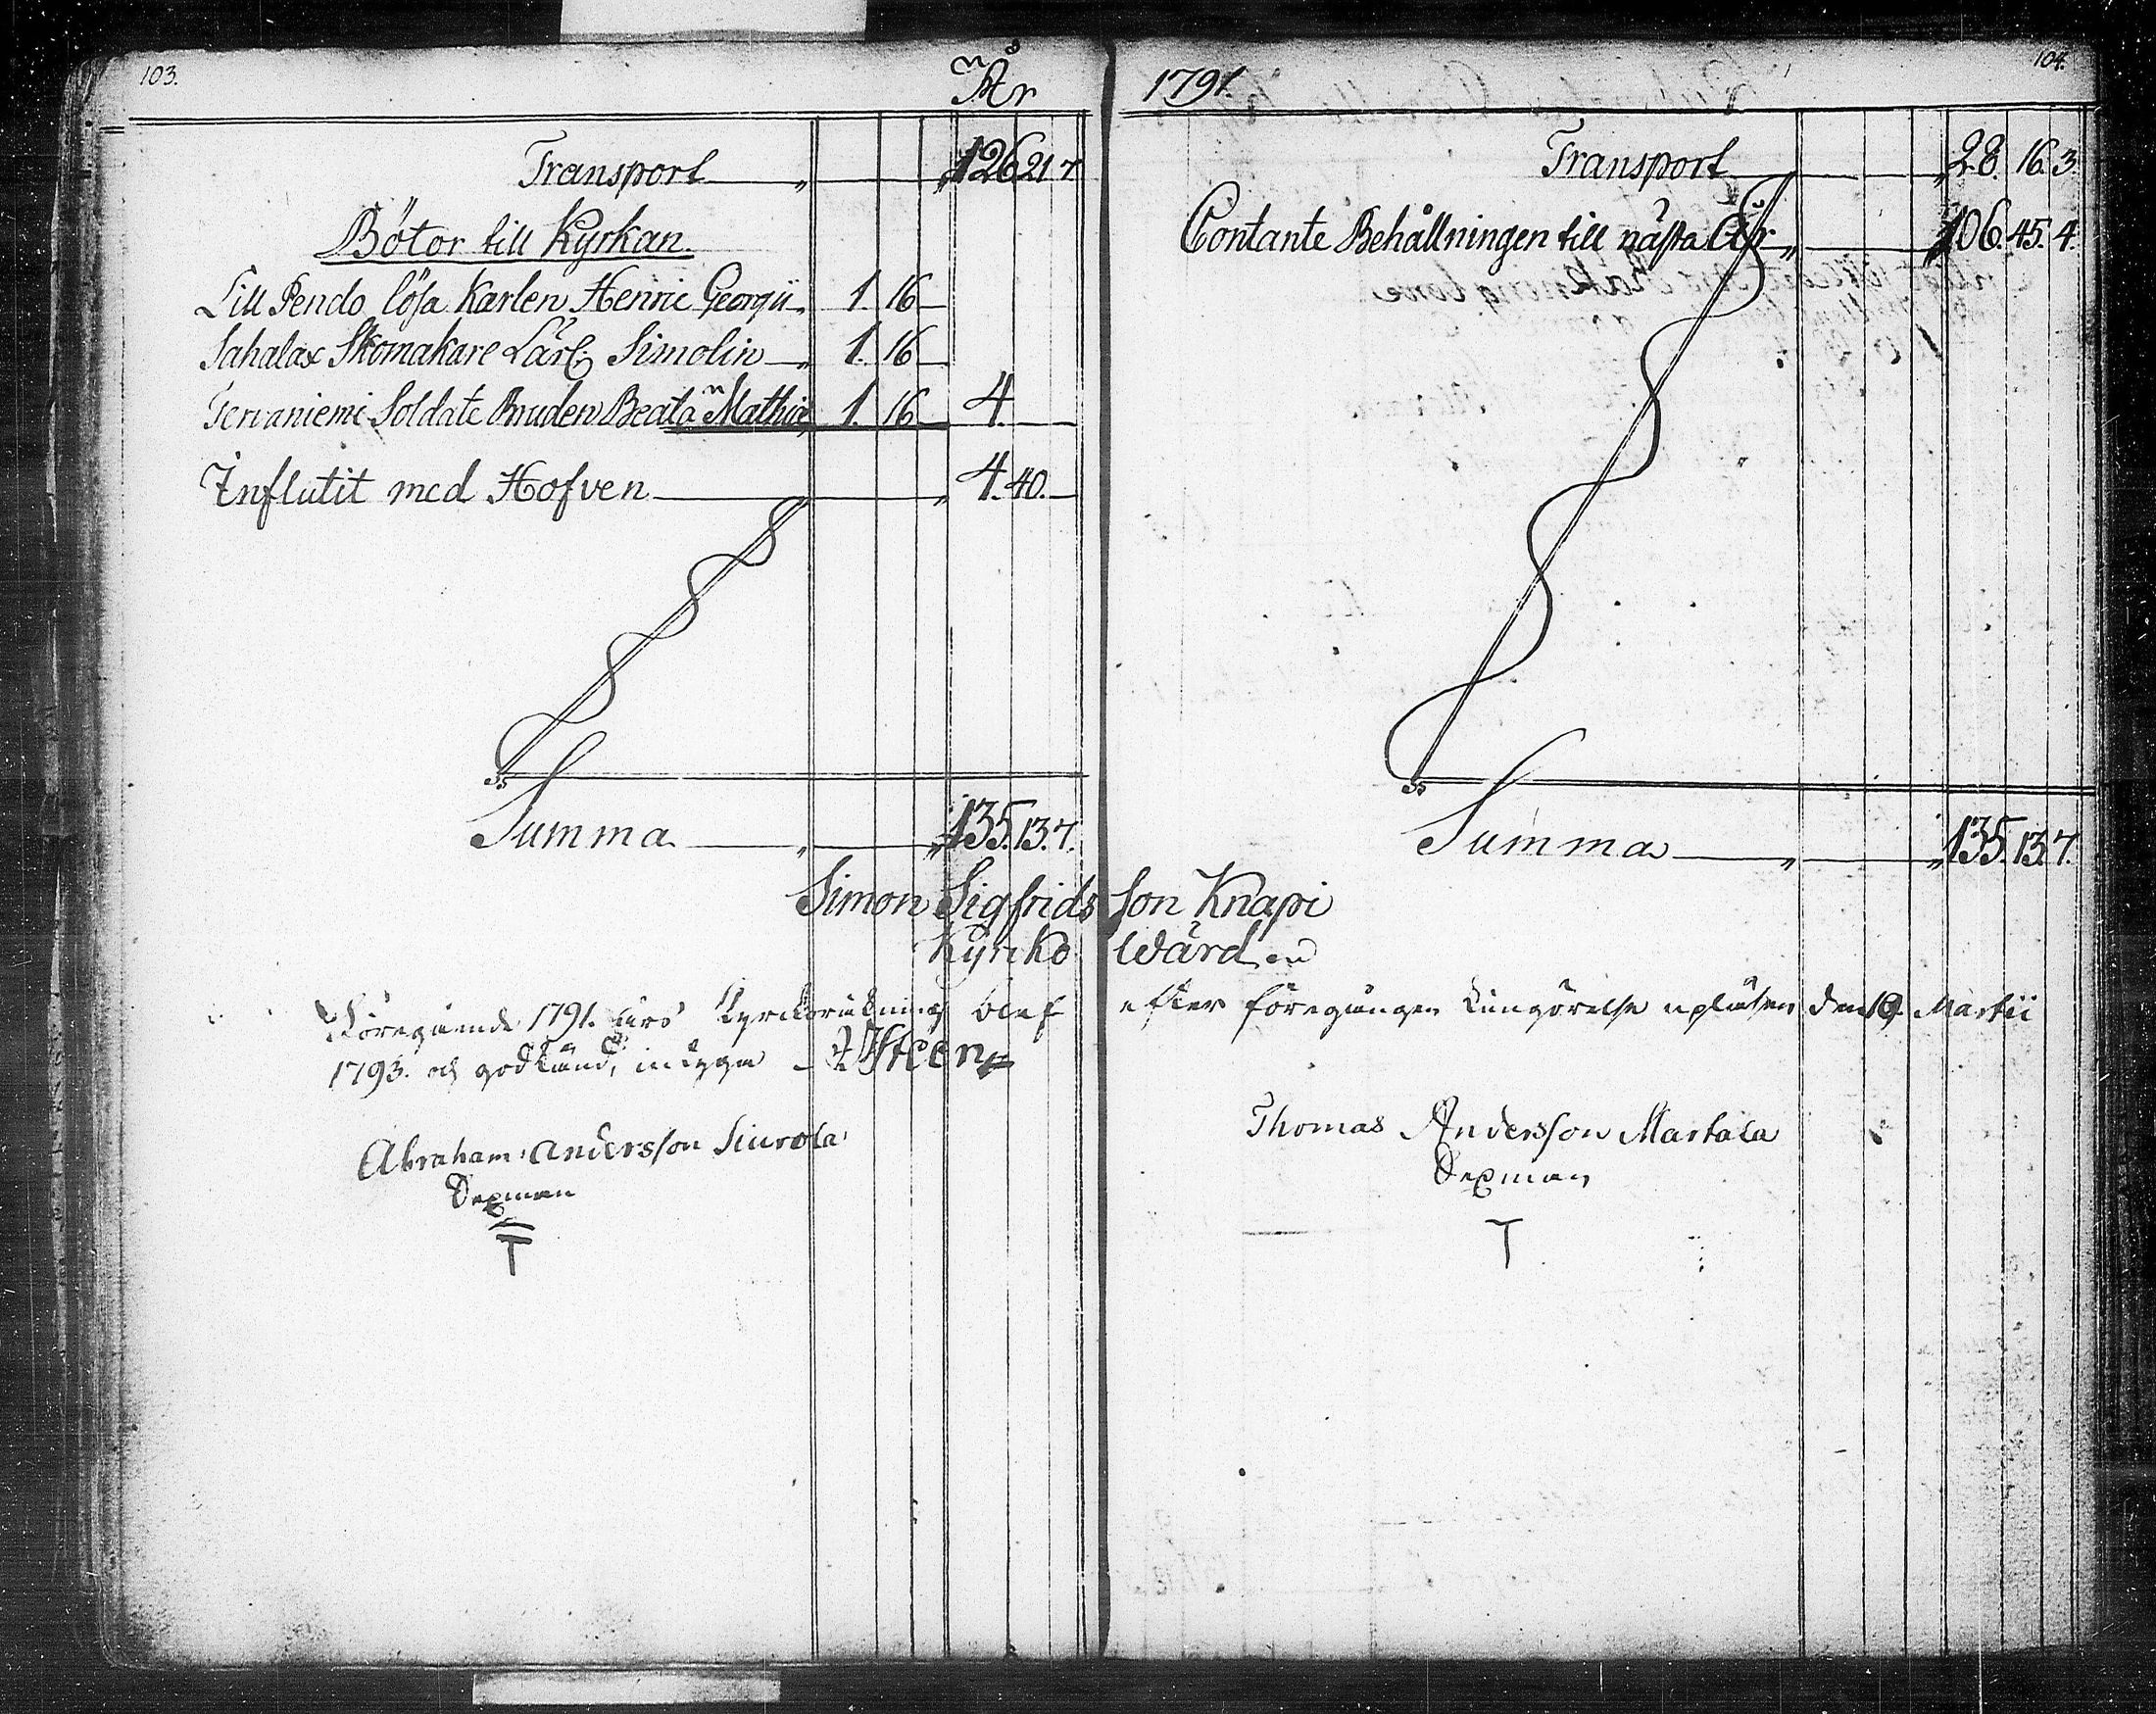 103.
År
Transport 126 21 7
Bötor till Kyrkan.
Lill Pendo lösa Karlen Henric Georgii 1. 16
Sahalax Skomakare Lärl: Simolin 1. 16
Tervaniemi Soldate Bruden Beata Mathiæ 1. 16 4.
Influtit med Hofven 4. 40.
Summa 135. 13. 7.
104.
1791.
Transport 28. 16. 3.
Contante Behållningen till nästa År 106. 45. 4.
Summa 135. 13. 7.
Simon Sigfrids son Knapi
Kyrko Wärden
Föregående 1791. års Kyrckoräkning blef efter föregången kungörelse upläsen den 10. Martii
1793. och godkänd, intygar
Abraham Andersson Siurola
Sexman
T
Thomas Andersson Martala
Sexman
T